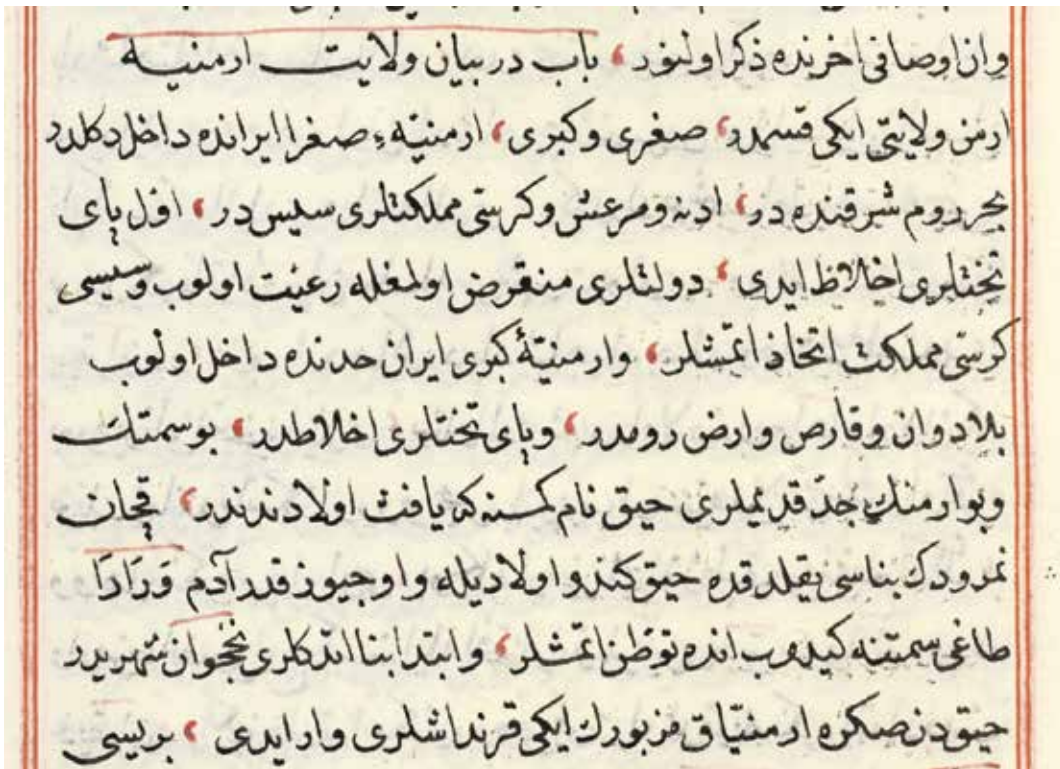 وان اوصافی اخرنده ذکر اولنور ، باب در بیان ولایت ارمنیه
ارمن ولایتی ایکی قسمدر ، صغری وکبری ، ارمنیهٔ صغرا ایرانده داخل دکلدر
بحر روم شرقنده در ، ادنه ومرعش وکرسی مملکتلری سیس در ، اول پای
تختلری اخلاط ایدی ، دولتلری منقرض اولمغله رعیت اولوب وسیسی
کرسی مملکت اتخاذ اتمشلر ، وارمنیهٔ کبری ایران حدنده داخل اولوب
بلاد وان وقارص وارض رومدر ، وپای تختلری اخلاطدر ، بو سمتك
وبو ارمنك جدّ قدیملری حیق نام کمسنه که یافث اولادندندر ، قچان
نمرودك بناسی یقلدقده حیق کندو اولادیله واوچیوز قدر آدم وَرَادَا
طاغی سمتنه کیدوب انده توطن اتمشلر ، وابتدا بنا اتدکلری نخجوان شهریدر
حیقدن صکره ارمنیاق مزبورك ایکی قرنداشلری وار ایدی ، بریسی